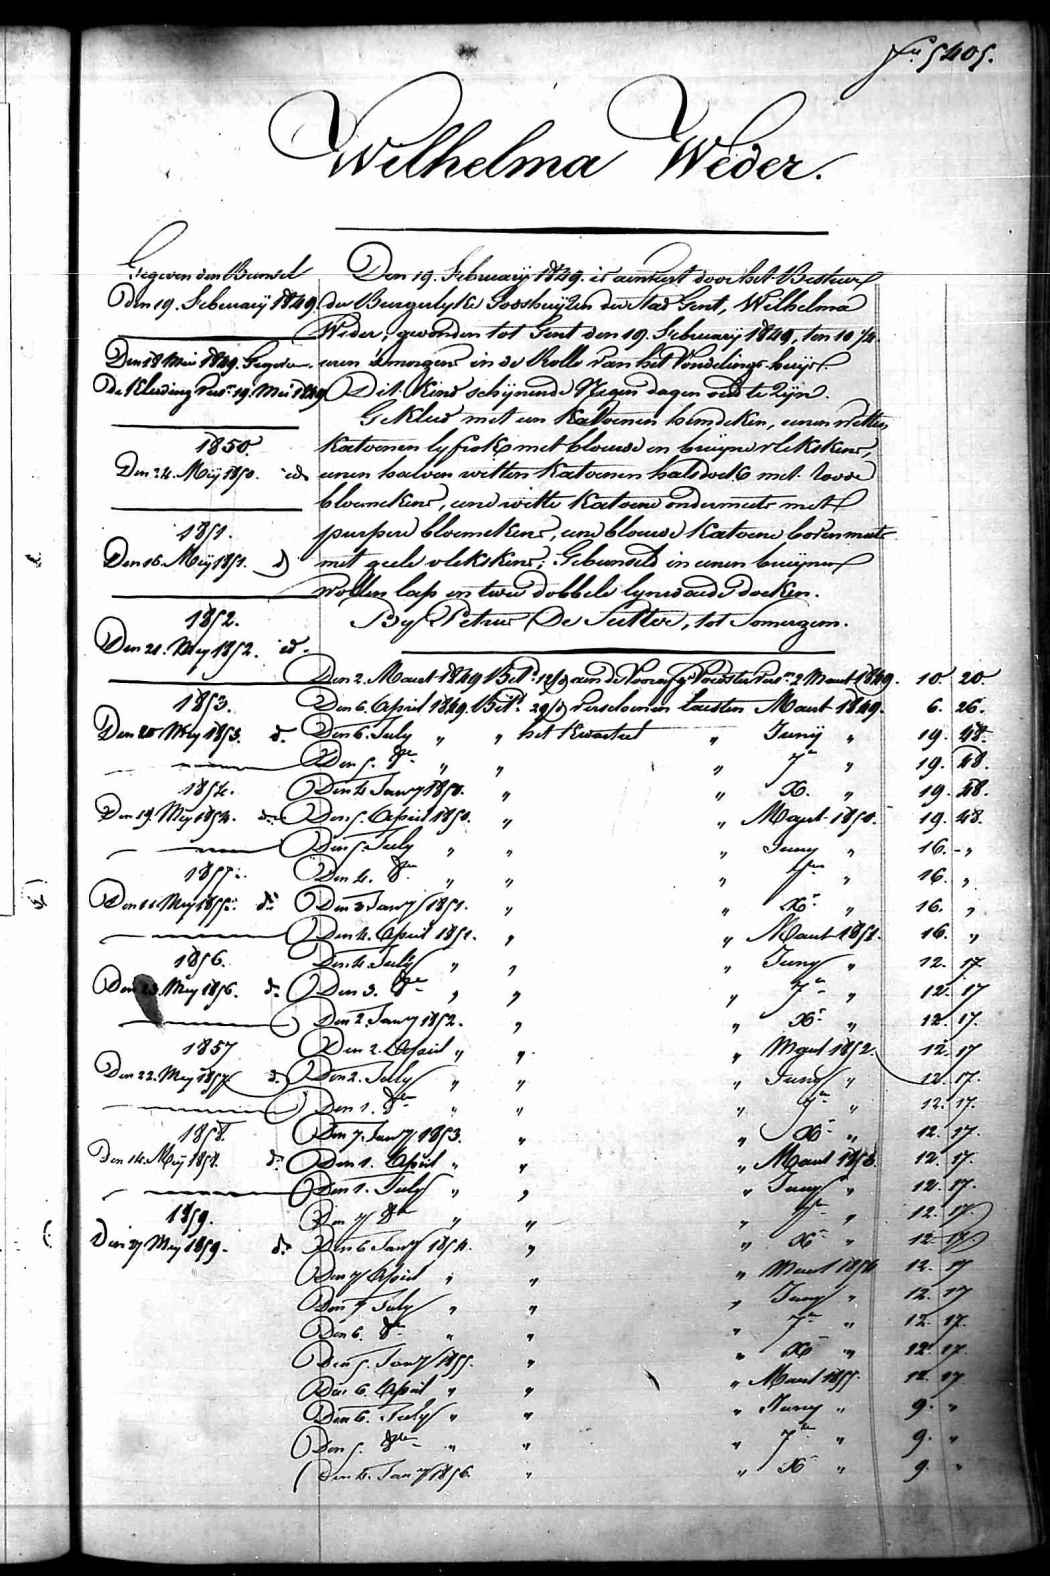 5405.
Wilhelma Weder.
Gegeven den Bunsel
Den 19. February 1849.
Den 18 Mei 1849. Gegeven
De Kleeding vers. 19. Mei 1849
1850.
Den 24. Meÿ 1850. id
1851.
Den 16. Meÿ 1851. d
1852.
Den 21. Mey 1852. id.
1853.
Den 20 Mey 1853. d.
1854.
Den 19. Mey 1854. do
1855.
Den 11. Mey 1855. do
1856.
Den 23. Mey 1856. do
1857
Den 22. Mey 1857 d.
1858.
Den 14. Meÿ 1858. do
1859.
Den 27 Mey 1859. do
Den 19. February 1849. is aenveert door het Bestuer
der Burgerlyke Godshuijzen der stad Gent, Wilhelma
Weder, gevonden tot Gent den 19. February 1849, ten 10 1/4
uren 's morgens in de Rolle van het Vondelings-huijs.
Dit Kind schijnende Negen dagen oud te Zijn.
Gekleed met een Katoenen hemdeken, eenen witten
Katoenen lyfrok met blouwe en bruijne vlekskens,
eenen halven witten Katoenen halsdoek met roode
bloemekens, eene witte Katoene ondermuts met
purpere bloemekens, eene blouwe Katoene bovenmuts
met geele vlekskens; Gebunseld in eenen bruijnen
wollen lap en twee dobbele lynwaede doeken.
By Petrus De Sutter, tot Somergem.
Den 2. Maert 1849 Bet. 12/d aen de Voorafg. Voedster vers. 2 Maert 1849. 10 20
Den 6. April 1849. Bet. 29/d verscheenen laesten Maert 1849. 6. 26.
Den 6. July " " het Kwartael " Junÿ " 19. 48.
Den 5. 8re " " " 7re " 19. 48.
Den 4 Janry 1850. " " X. " 19. 48.
Den 5. April 1850. " " Maert 1850. 19. 48.
Den 5. July " " " Juny " 16. - "
Den 4. 8re " " " 7re " 16. "
Den 3 Janry 1851. " " Xr " 16. "
Den 4. April 1851. " " Maert 1851. 16. "
Den 4. July " " " Juny " 12. 17.
Den 3. 8re " " " 7re " 12. 17
Den 2. Janry 1852. " " Xr " 12. 17.
Den 2. April " " " Maert 1852. 12. 17
Den 2. July " " " Juny " 12. 17.
Den 1. 8re " " " 7re " 12. 17.
Den 7. Janry 1853. " " Xr " 12. 17.
Den 1. April " " " Maert 1853 12. 17.
Den 1. July " " " Juny " 12. 17.
Den 7 8re " " " 7re " 12. 17.
Den 6 Janry 1854. " " Xr " 12. 17.
Den 7 April " " " Maert 1854 12. 17
Den 7 July " " " Juny " 12. 17
Den 6. 8re " " " 7re " 12. 17.
Den 5. Janry 1855. " " Xr " 12. 17.
Den 6. April " " " Maert 1855. 12. 17
Den 6. July " " " Juny " 9. "
Den 5. 8re " " " 7re " 9. "
Den 4. Janry 1856. " " Xr " 9. "